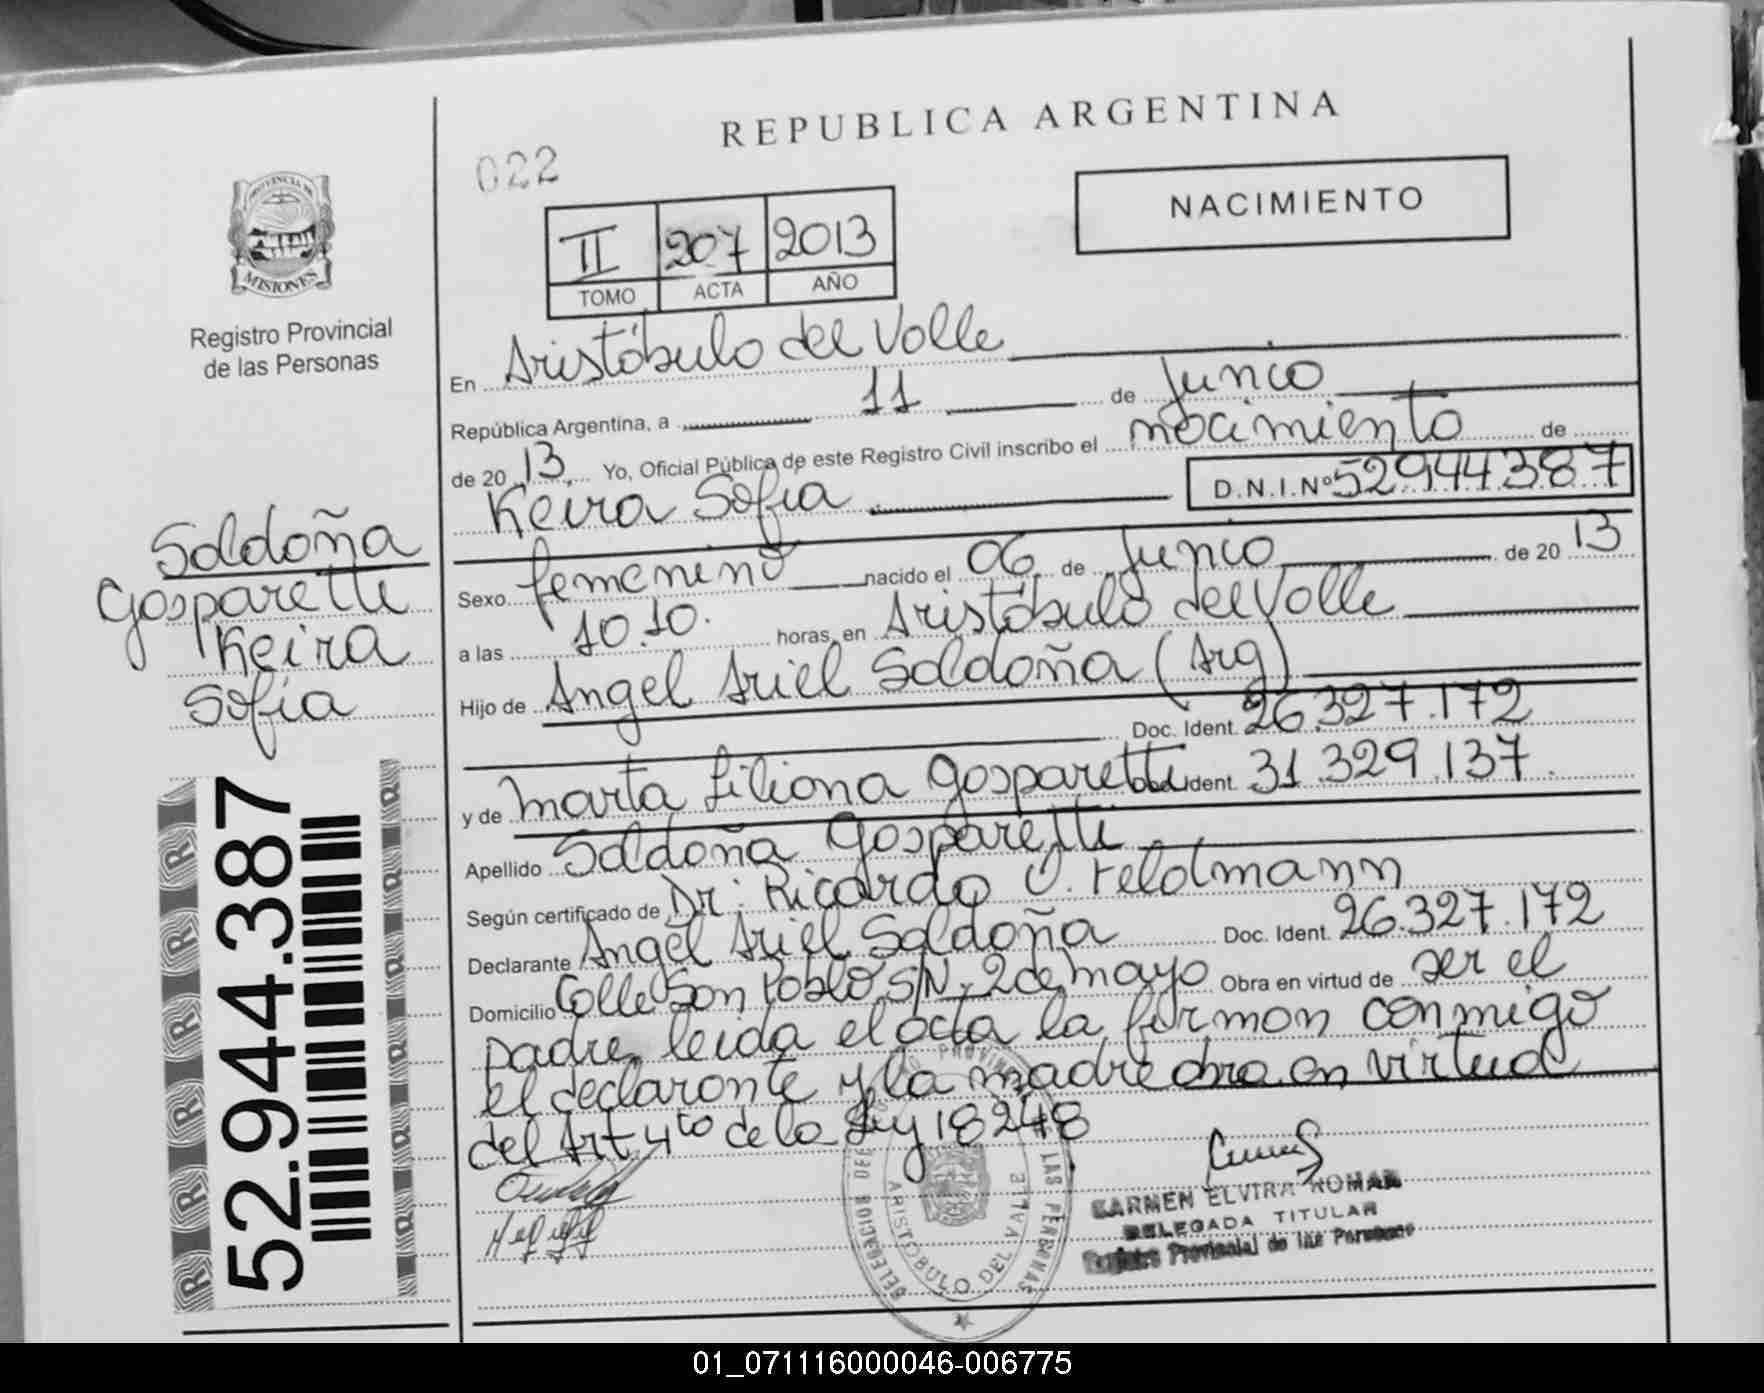 REPUBLICA ARGENTINA
022
NACIMIENTO
II 207 2013
TOMO ACTA AÑO
PROVINCIA DE
MISIONES
Registro Provincial
de las Personas
En Aristóbulo del Valle
República Argentina, a 11 de Junio
de 2013. Yo, Oficial Pública de este Registro Civil inscribo el nacimiento de
Keira Sofia D.N.I.Nº 52944387
Saldaña
Gasparetti
Keira
Sofia
Sexo femenino nacido el 06 de Junio de 2013
a las 10.10. horas, en Aristóbulo del Valle
Hijo de Angel Ariel Saldaña (Arg)
Doc. Ident. 26.327.172
y de Marta Liliana Gasparetti Doc. Ident. 31.329.137.
Apellido Saldaña Gasparetti
Según certificado de Dr: Ricardo O. Feldmann
Declarante Angel Ariel Saldaña Doc. Ident. 26.327.172
Domicilio Calle San Pablo S/N. 2 de mayo Obra en virtud de ser el
padre, leida el acta la firman conmigo
el declarante y la madre obra en virtud
del Art 4to de la Ley 18248
52.944.387
ARISTOBULO DEL VALLE
LAS PERSONAS
CARMEN ELVIRA ROMAN
DELEGADA TITULAR
Registro Provincial de las Personas
01_071116000046-006775